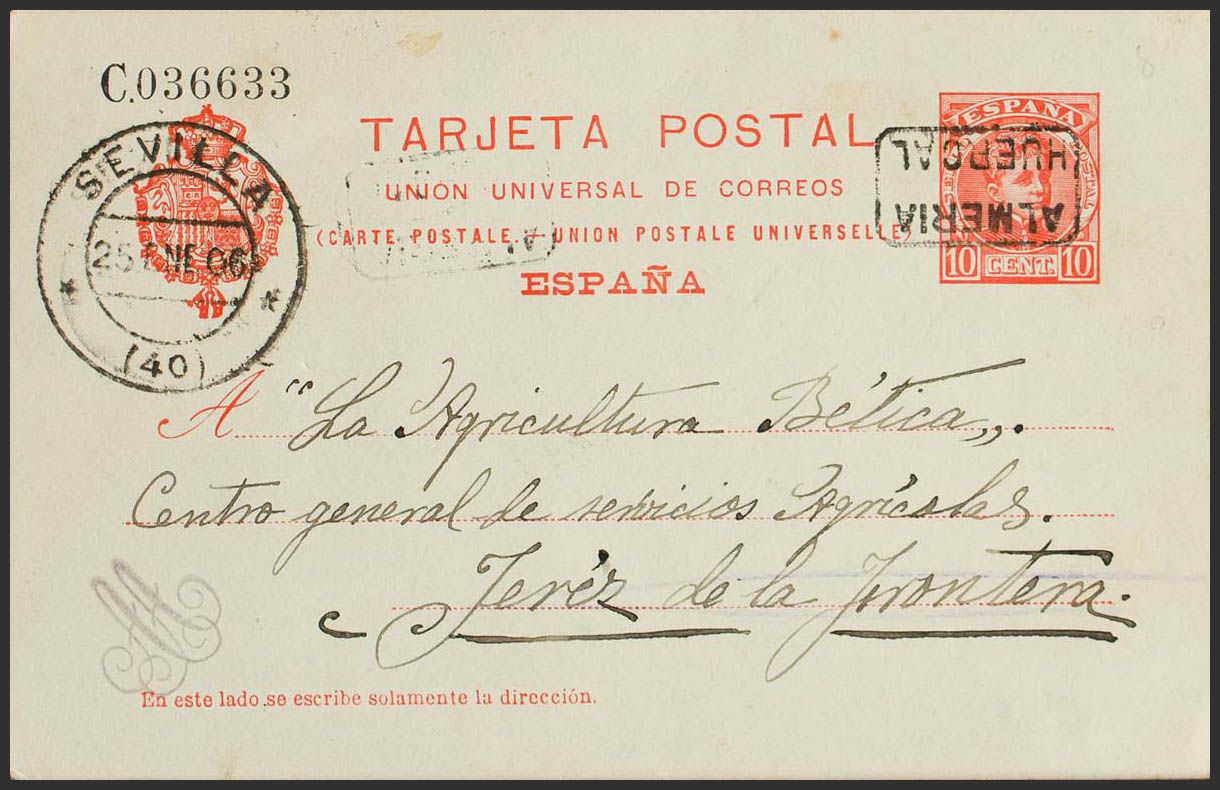 C.036633
TARJETA POSTAL
UNIÓN UNIVERSAL DE CORREOS
(CARTE POSTALE.—UNION POSTALE UNIVERSELLE)
ESPAÑA
ESPAÑA
POSTAL
10 CENT. 10
ALMERIA
HUERCAL
SEVILLA
25 ENE 06
(40)
A "La Agricultura Bética„.
Centro general de servicios Agrícolas.
Jeréz de la Frontera.
En este lado se escribe solamente la dirección.